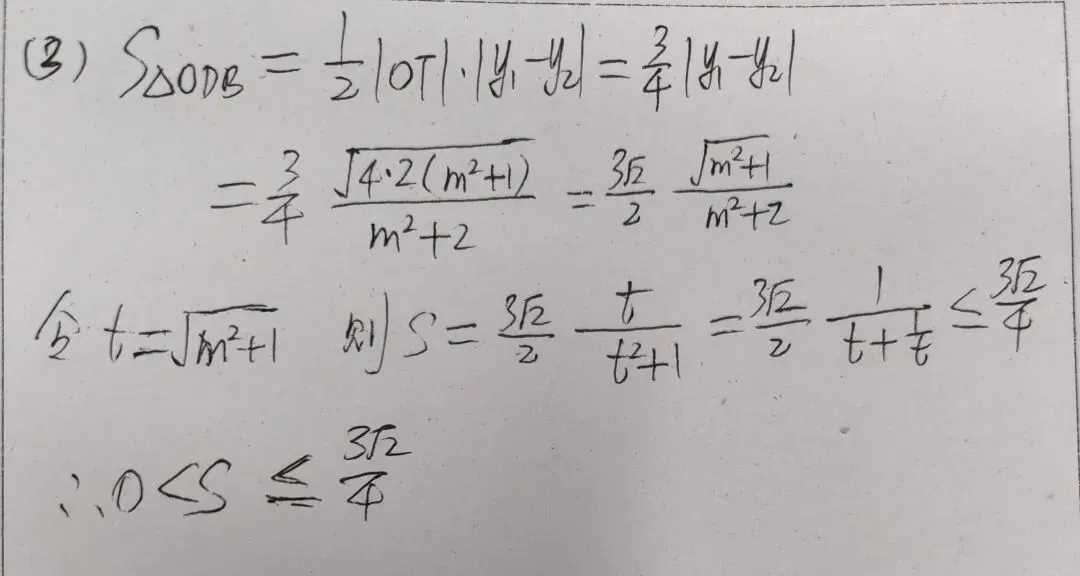 (3) S△ODB = 1/2|OT|·|y₁-y₂| = 3/4|y₁-y₂|
= 3/4 √(4·2(m²+1))/(m²+2) = 3√2/2 √(m²+1)/(m²+2)
令 t=√(m²+1) 则 S = 3√2/2 t/(t²+1) = 3√2/2 1/(t+1/t) ≤ 3√2/4
∴0<S ≤ 3√2/4